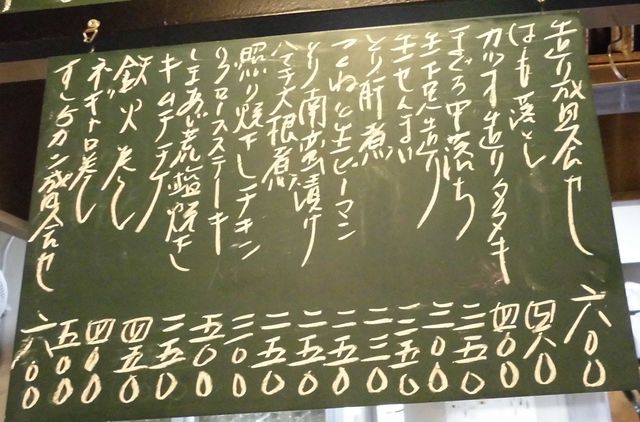 造り盛合せ 六〇〇
はも落とし 四八〇
カツオ造りタタキ 四〇〇
まぐろ中落ち 三五〇
生下足造り 三〇〇
生せんまい 三五〇
とり肝煮 二三〇
つくねと生ピーマン 二五〇
とり南蛮漬け 二五〇
ハマチ大根煮 二五〇
照り焼きチキン 三〇〇
リブロースステーキ 五〇〇
しまあじ荒塩焼き 二五〇
キムチ 四五〇
鉄火巻き 四〇〇
ネギトロ巻き 五〇〇
盛合せ 六〇〇